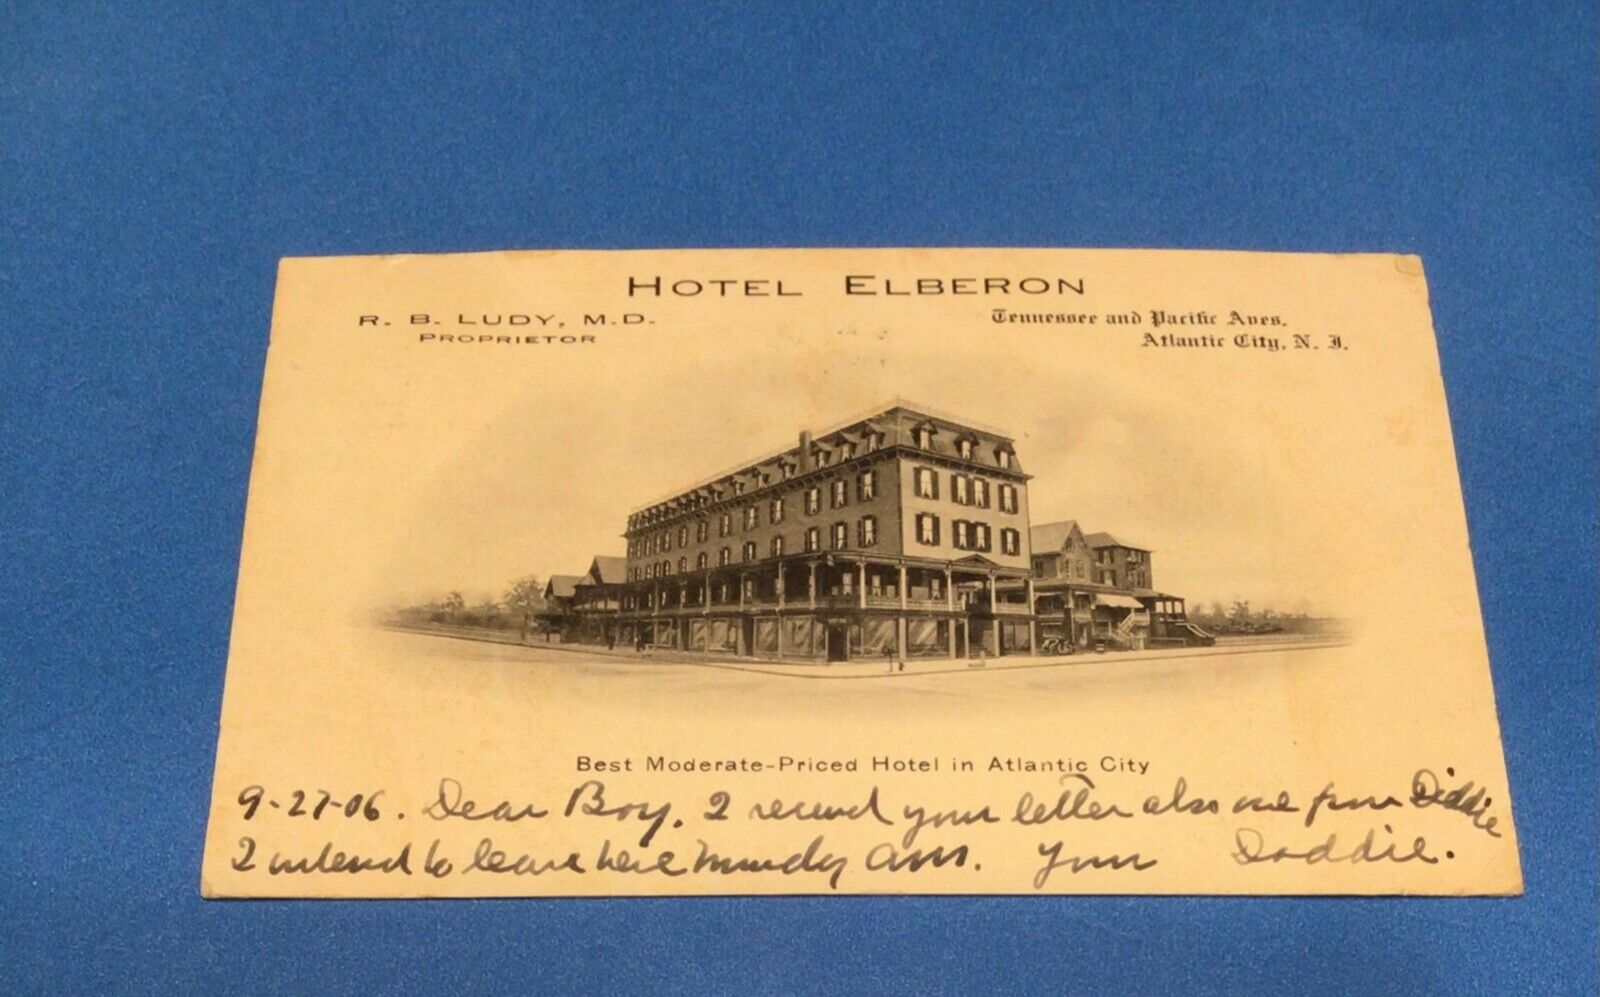 HOTEL ELBERON
R. B. LUDY, M.D.
PROPRIETOR
Tennessee and Pacific Aves.
Atlantic City, N. J.
Best Moderate-Priced Hotel in Atlantic City
9-27-06. Dear Boy, I received your letter also one from Diddie
I intend to leave here Monday a.m. Your Daddie.